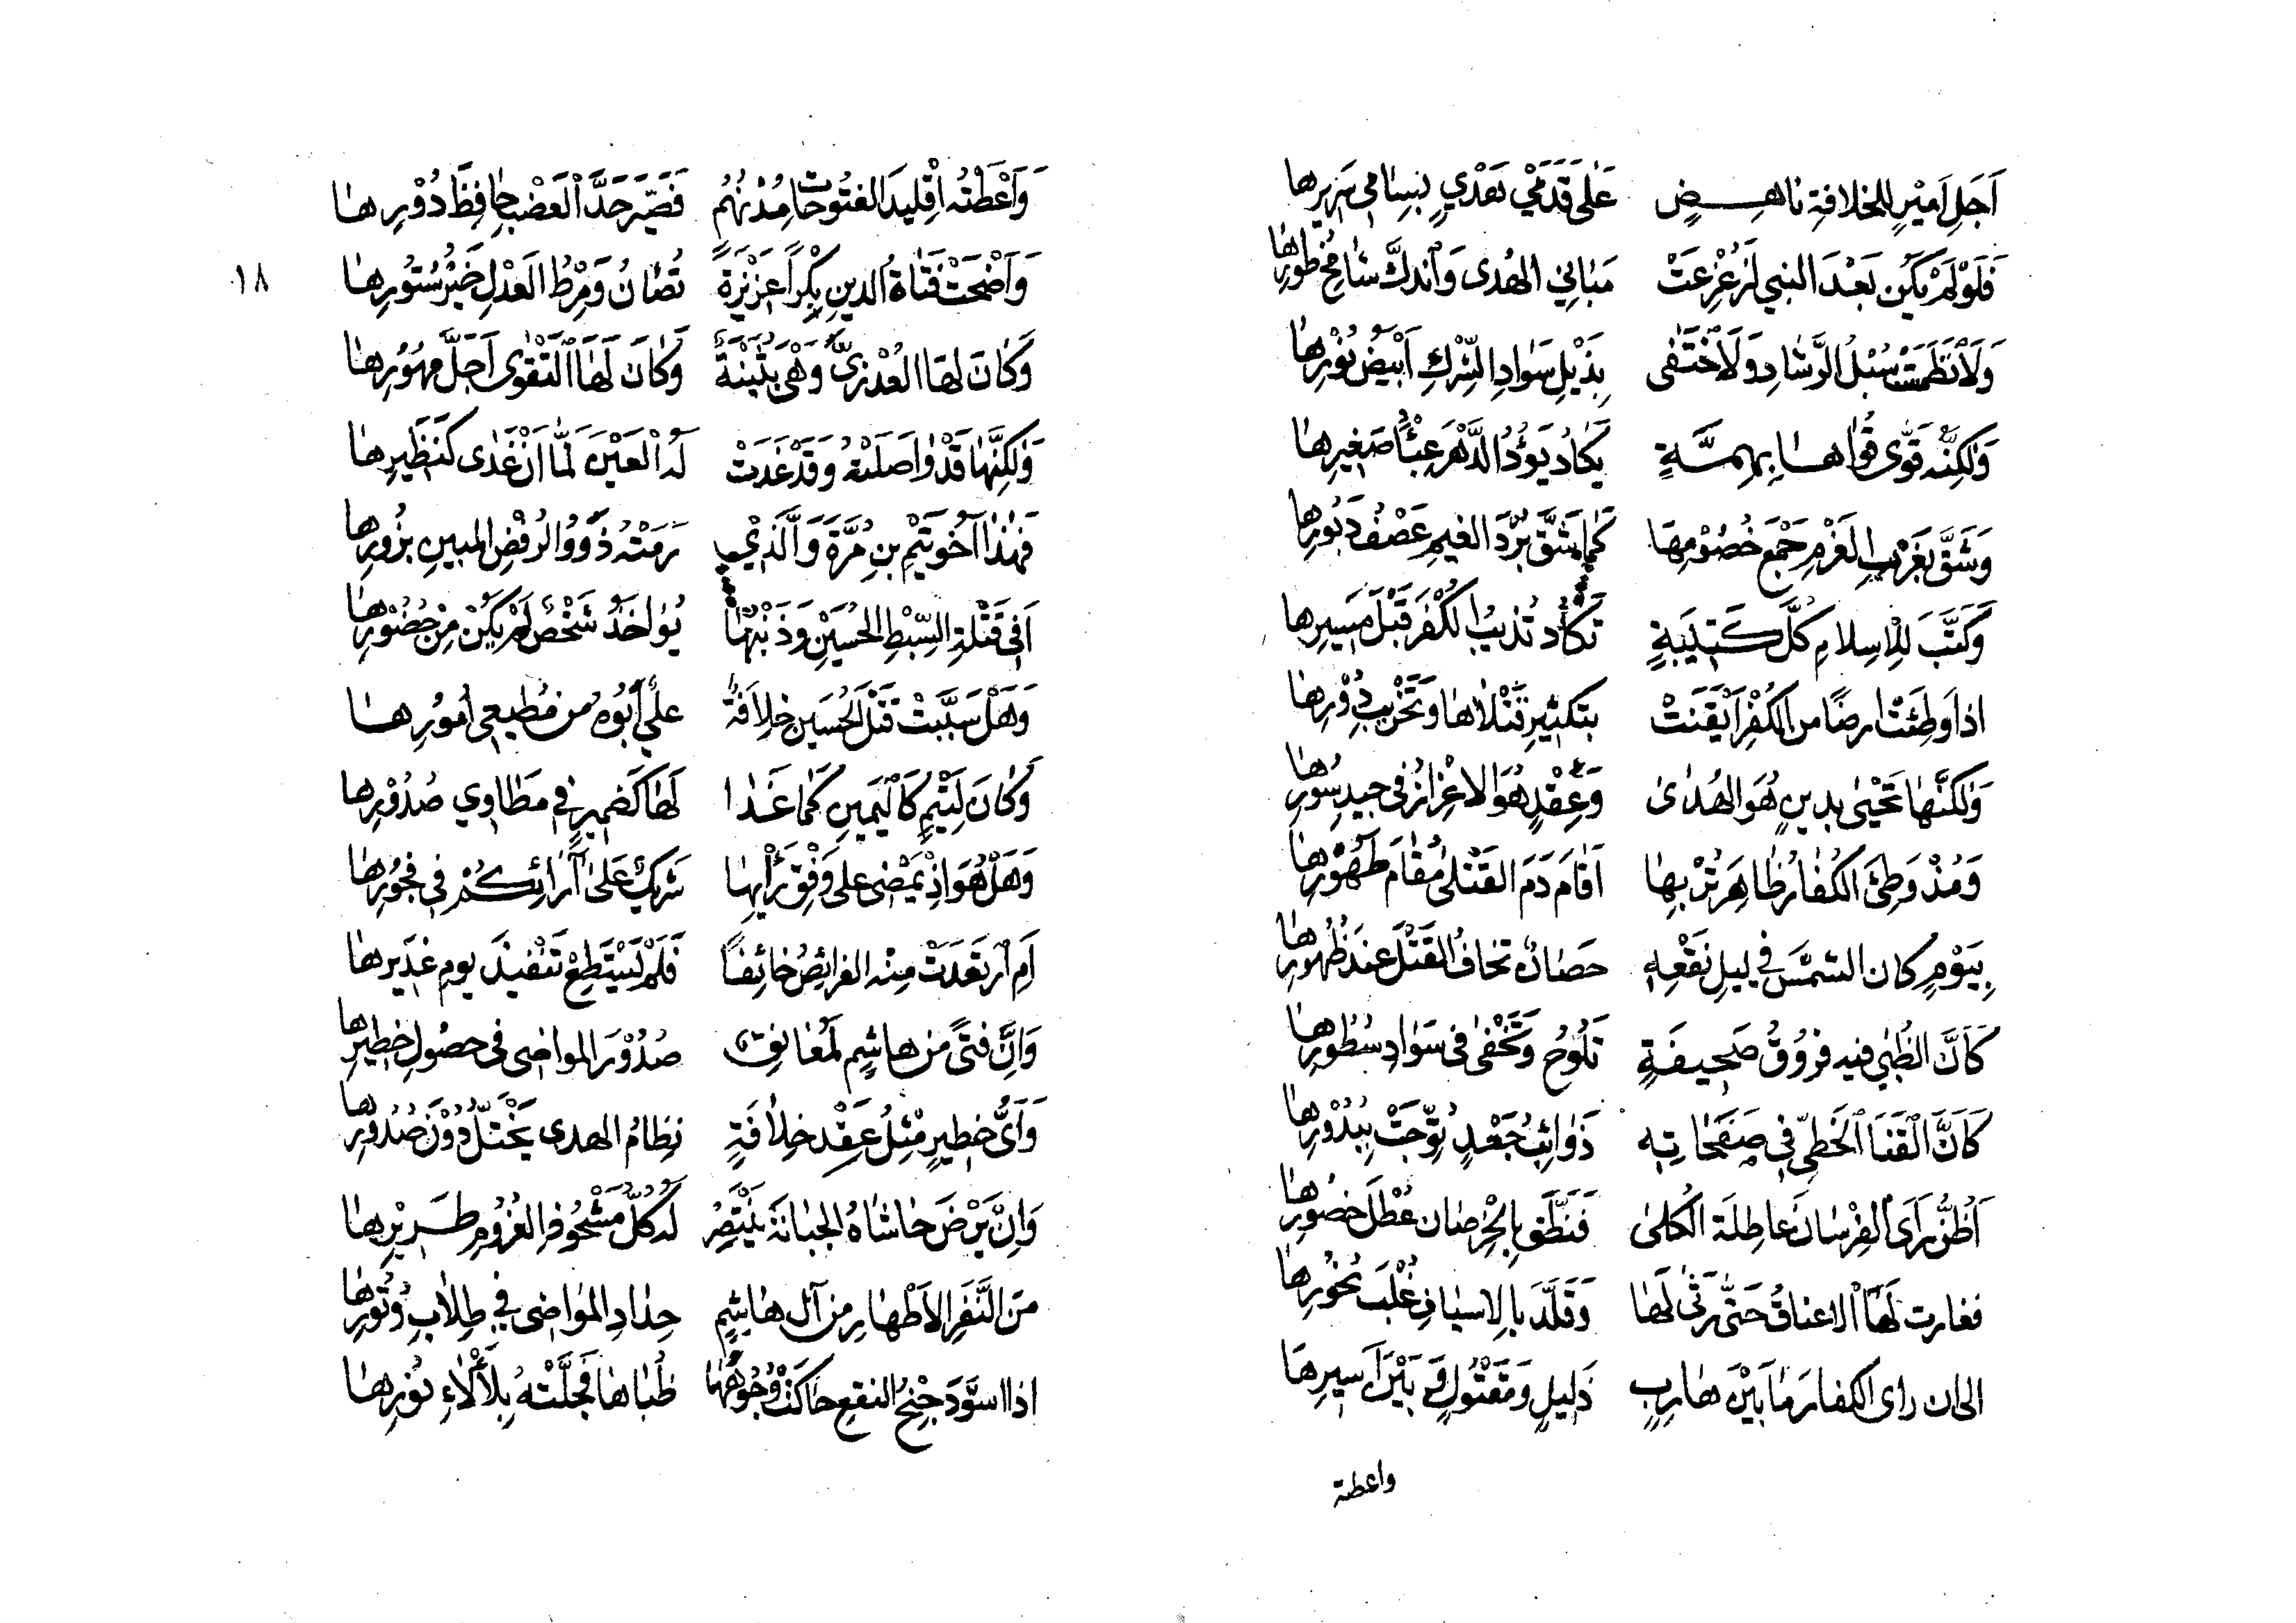 اَجَلِ اَمِيْرٍ لِلخلافةِ نَاهِضٍ عَلٰى قَدَمَيْ بَعْدِيٍ بِسِامِي سَرِيرِها
فَلَوْ لَمْ يَكُن بَعْدَ النبي لَزُعْزِعَتْ مَبَانِي الهُدى وَاندَكَّ شَامِخُ طورِها
وَلَانْطَمَسَتْ سُبْلُ الرَّشَادِ وَلَاخْتَفى بِذَيْلِ سَوَادِ الشِّركِ اَبْيَضُ نُورِها
وَلكِنَّه قَوّٰى قُوٰاهَا بِهِمَّةٍ يَكَادُ يَؤُدُ الدَّهْرَ عِبْأً صَغِيرِها
وَشَقَّ بِغَرْبِ العَزْمِ جَمْعَ خُصُوْمِهَا كَمَا شَقَّ بُرْدَ الغيمِ عَصْفُ دَبُورِها
وَكَتَّبَ لِلْاِسلامِ كُلَّ كَتِيبَةٍ تَكَادُ تُذِيبُ الكُفْرَ قَبْلَ مَسِيرِها
اذا وَطِئَتْ ارضًا من الكُفْرِ اَيْقَنَتْ بتكثيرِ قَتْلَاهَا وَتَخْرِيبِ دُوْرِها
وَلكنَّهَا تَحْيٰى بدينٍ هُوَ الهُدٰى وَعِقْدٍ هُوَ الاعْزازُ في جيدِ سُورِها
وَمُذْ وَطِئَ الكُفّارُ ظَاهِرَ تُرْبِهَا اَقَامَ دَمَ القَتْلٰى مُقَامَ طَهُوْرِها
بِيَوْمٍ كان الشمْسَ في ليلِ نَقْعِهِ حَصَانٌ تخافُ القَتْلَ عِندَ ظُهُورِها
كَاَنَّ الظُّبٰي فيه فروُقُ صَحِيفَةٍ تَلُوْحُ وَتَخْفٰى في سَوَادِ سُطُورِها
كَاَنَّ الْقَنَا الخَطِّيَّ في صَفَحَاتِهِ ذَوَائِبُ جَعْدٍ تُوِّجَتْ بِبُدُوْرِها
اَظُنُّ رَاَى الفِرْسَانَ عَاطِلَةَ الكُلىٰ فَنَطَّقَ بِالخِرْصَان عُطْلَ خصُورِها
فغارت لَهَا الاعناقُ حَتّٰى رَثٰى لَهَا وَقَلَّدَ بالاسيافِ غُلْبَ نحُورِها
الى ان راى الكفارَ مَا بَيْنَ هَارِبٍ ذَلِيلٍ وَمَقْتُولٍ وَ بَيْنَ اَسِيرِهَا
واعطته
١٨
وَاَعْطَتْهُ اِقْلِيدَ الفتُوحَاتِ مُدْنُهُم فَصَيَّرَ حَدَّ الْعَضْبِ حَافِظَ دُوْرِها
وَاَضْحَتْ فَتَاةُ الدينِ بِكْراً عَزِيْزَةً تُصَانُ وَمِرْطُ العَدْلِ خَيْرُ سُتُورِها
وَكَانَ لَهَا العُذْرِيَّ وَهْيَ بُثَيْنَةٌ وَكَانَ لَهَا التَّقْوٰى اَجَلَّ مهُوُرِها
وَلكِنَّهَا قَدْ وَاصَلَتْهُ وَقَدْ غَدَتْ لَهُ الْعَيْنَ لَمَّا اَنْ غَدٰى كَنَظِيرِها
فَهٰذَا اَخُو تَيْمِ بنِ مُرَّةَ وَالَّذِيْ رَمَتْهُ ذَوُو الرفْضِ المبينِ بِزُورِها
اَفي قَتْلَةِ السِّبْطِ الحُسَيْنِ وَذَنْبُهَا يُوٰاخَذُ شَخْصٌ لَمْ يَكُنْ مِنْ حُضُوْرِها
وَهَلْ سَبَّبَتْ قَتْلَ الحُسَينِ خِلاَفَةٌ عليٌّ اَبُوْهُ من مُطِيعِي اُمُورِها
وَكَانَ لِتَيْمٍ كَالْيَمِينِ كَمَا غَدَا لَهَا كَضَمِيرٍ في مَطَاوِي صُدُوْرِها
وَهَلْ هُوَ اِذْ يَمْضِي على وَفْقِ رَأْيِهَا شَرِيكٌ عَلىٰ آرَائِكُم في فجُورِها
اَمِ ارْتَعَدَتْ مِنْه الفرائِصُ خَائِفاً فَلَمْ يَسْتَطِعْ تَنْفِيذَ يومِ غدَيرِها
وَاِنَّ فتىً من هاشِمٍ لَمُعَانِقٌ صُدُوْرَ المواضي في حصُولِ خطيرِها
وَاَيُّ خطيرٍ مْثِلُ عِقْدِ خِلاَفَةٍ نظامُ الهدى يَخْتَلُّ دُوْنَ صُدُوْرِها
وَاِنْ يَرْضَ حَاشَاهُ الجبَانَةَ يَنْتَصِرْ لَهُ كلُّ مَشْحُوذِ الغُرُومِ طَرِيْرِها
مِنَ النَّفَرِ الاَطْهَارِ مِن آلِ هَاشِمٍ حِدَادِ المَوَاضِي في طِلاَبِ وُتُورِها
اذا اسوَّدَ جِنْحُ النقعِ حَاكَتْ وُجُوْهُهَا ظُبَاهَا فَجَلَّتْهُ بِلَأْلَاءِ نُورِها